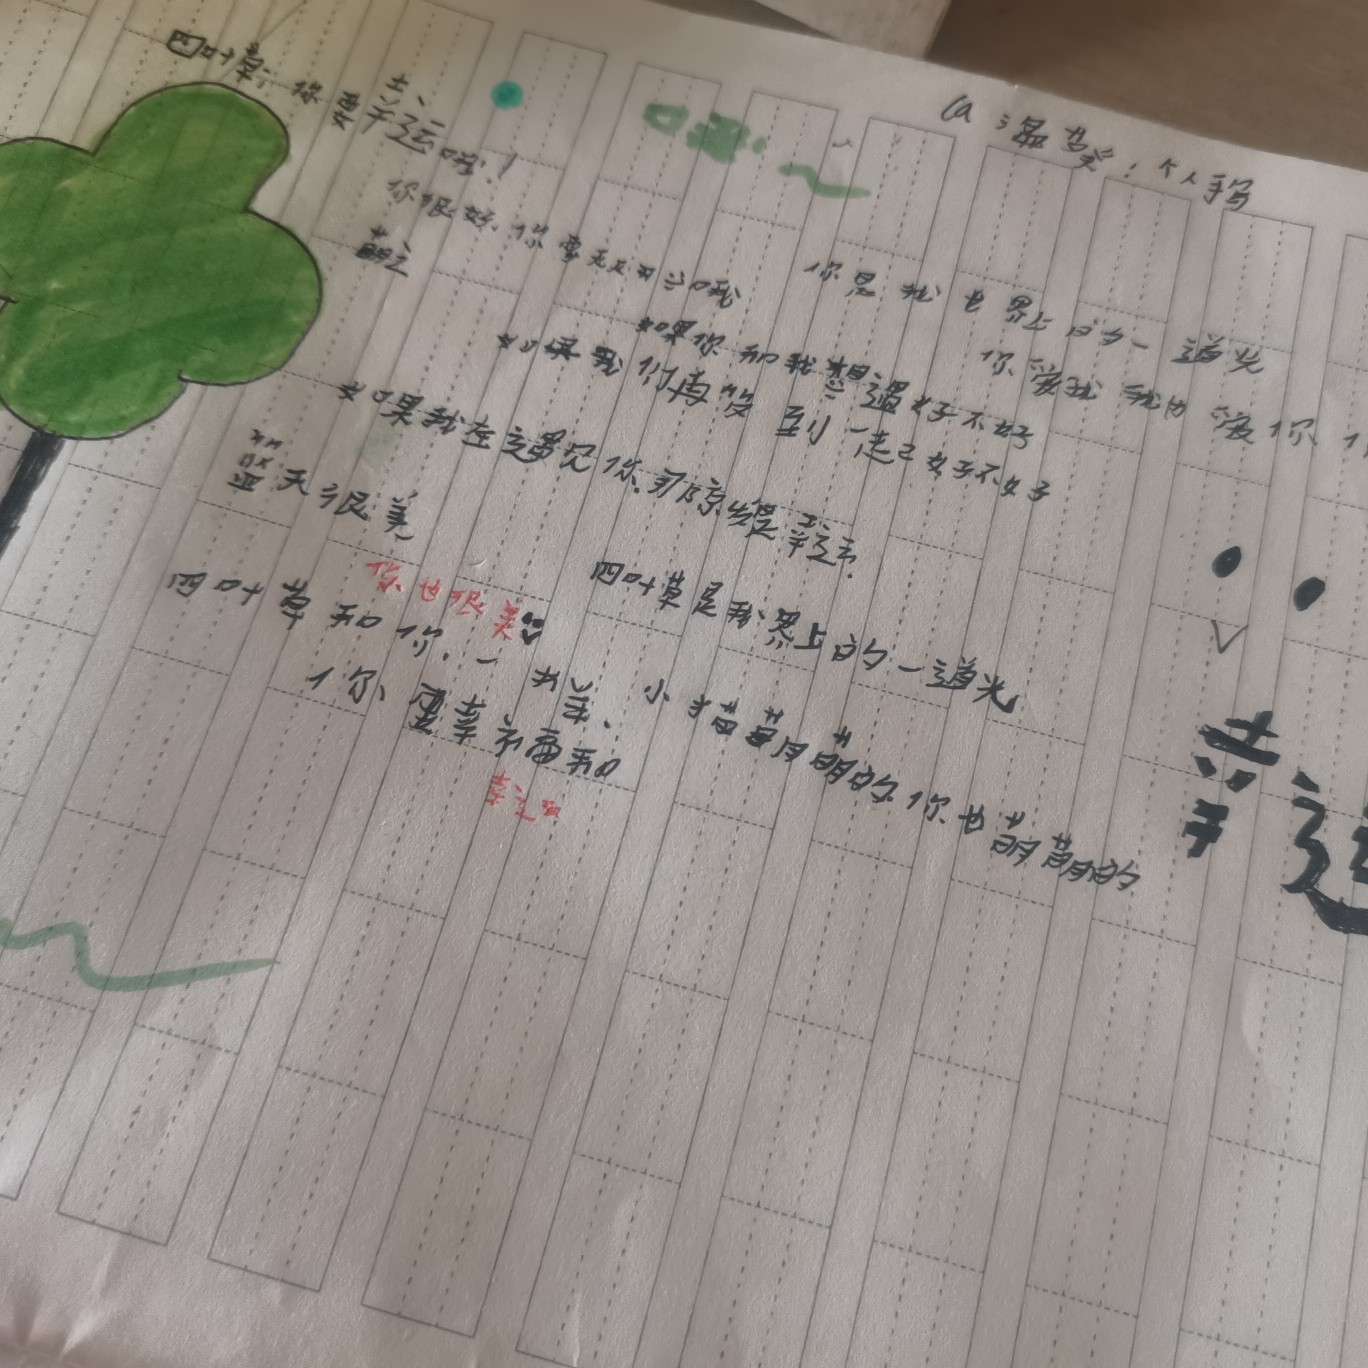 四叶草:你要幸运哦!
@温柔:个人手写
你很好,你要天天开心哦
萌
你是我世界上的一道光
你爱我我也爱你
如果你和我相遇好不好
如果我们再等到一起好不好
如果我在遇见你,那
蓝天很美
你也很美
四叶草是我界上的一道光
四叶草和你,一
小猫萌萌的你也萌萌的
你、要幸福和
幸运哦
幸运